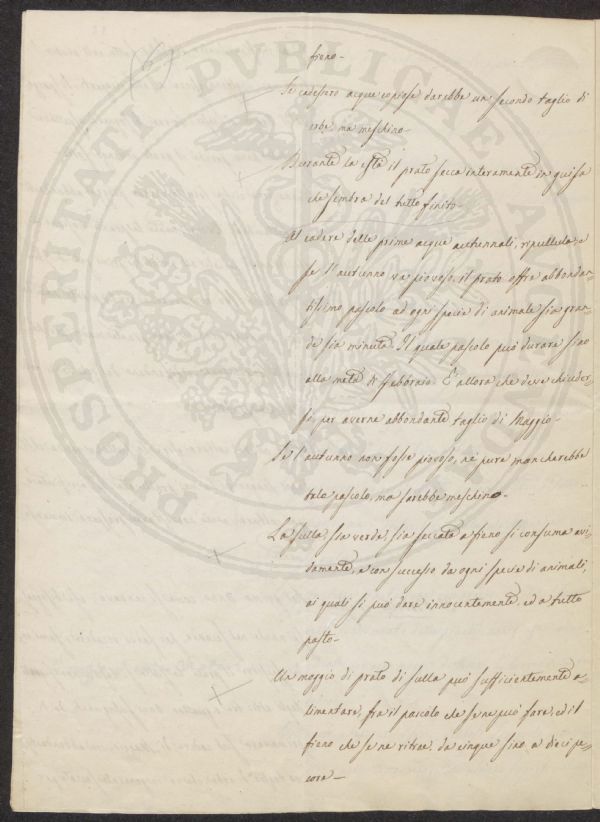 (6)
fieno-
Se cadessero acque copiose darebbe un secondo taglio di
erbe, ma meschino-
Durante la està il prato secca interamente in guisa
che sembra del tutto finito-
Al cadere delle prime acque autunnali, ripullula; e
se l'autunno va piovoso, il prato offre abbondan-
tissimo pascolo ad ogni specie di animale sia gran-
de sia minuto. Il quale pascolo può durare sino
alla metà di Febbraio. È allora che deve chiuder-
si, per averne abbondante taglio di Maggio-
Se l'autunno non fosse piovoso, nè pure mancherebbe
tale pascolo, ma sarebbe meschino-
La sulla, sia verde, sia seccata a fieno si consuma avi-
damente, e con successo da ogni specie di animali,
ai quali si può dare innocentemente, ed a tutto
pasto-
Un moggio di prato di sulla può sufficientemente a-
limentare, fra il pascolo che se ne può fare, ed il
fieno che se ne ritrae, da cinque sino a dieci pe-
core-
PROSPERITATI PVBLICAE AVGENDAE